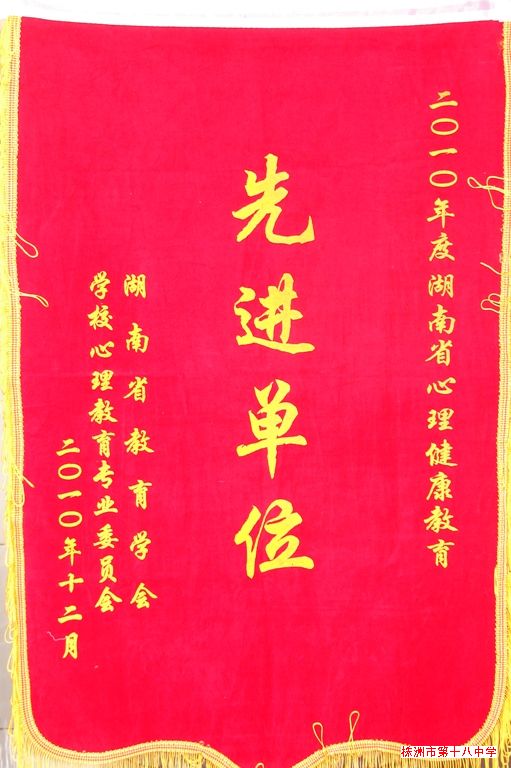 二〇一〇年度湖南省心理健康教育
先进单位
湖南省教育学会
学校心理教育专业委员会
二〇一〇年十二月
株洲市第十八中学